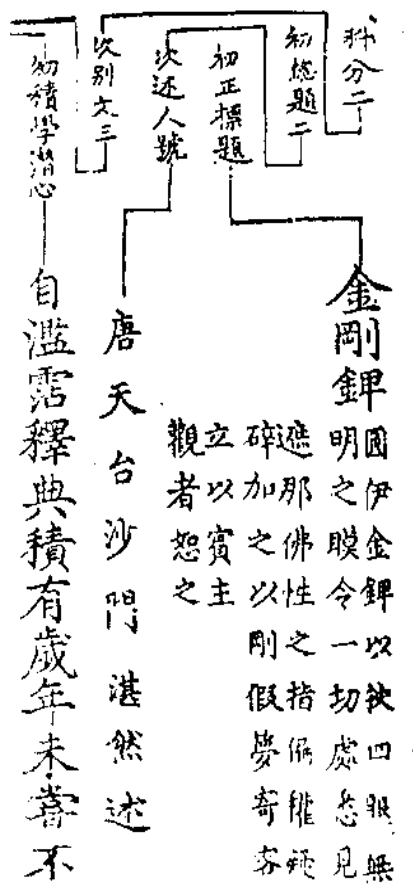 科分二
初總題二
初正標題
次述人號
次別文三
初積學潛心
金剛錍
圓伊金錍以抉四眼無
明之膜令一切處悉見
遮那佛性之指偏權疑
碎加之以剛假夢寄客
立以賓主
觀者恕之
唐天台沙門湛然述
自濫霑釋典積有歲年未嘗不